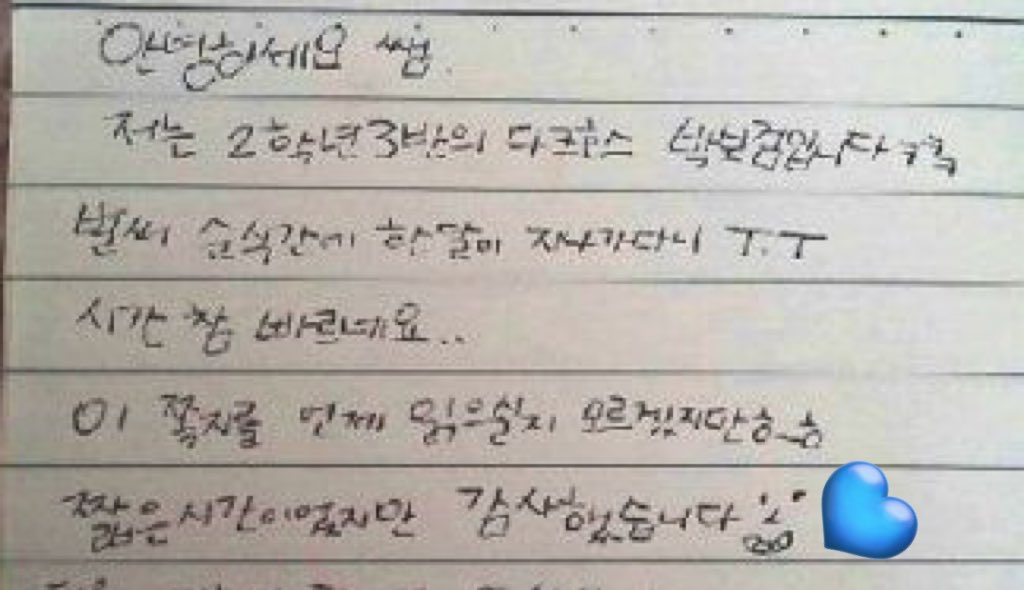 안녕하세요 쌤.
저는 2학년 3반의 다크호스 박보검입니다 ㅋㅋ
벌써 순식간에 한달이 지나가다니 T.T
시간 참 빠르네요..
이 쪽지를 언제 읽으실지 모르겠지만ㅎ_ㅎ
짧은 시간이었지만 감사했습니다